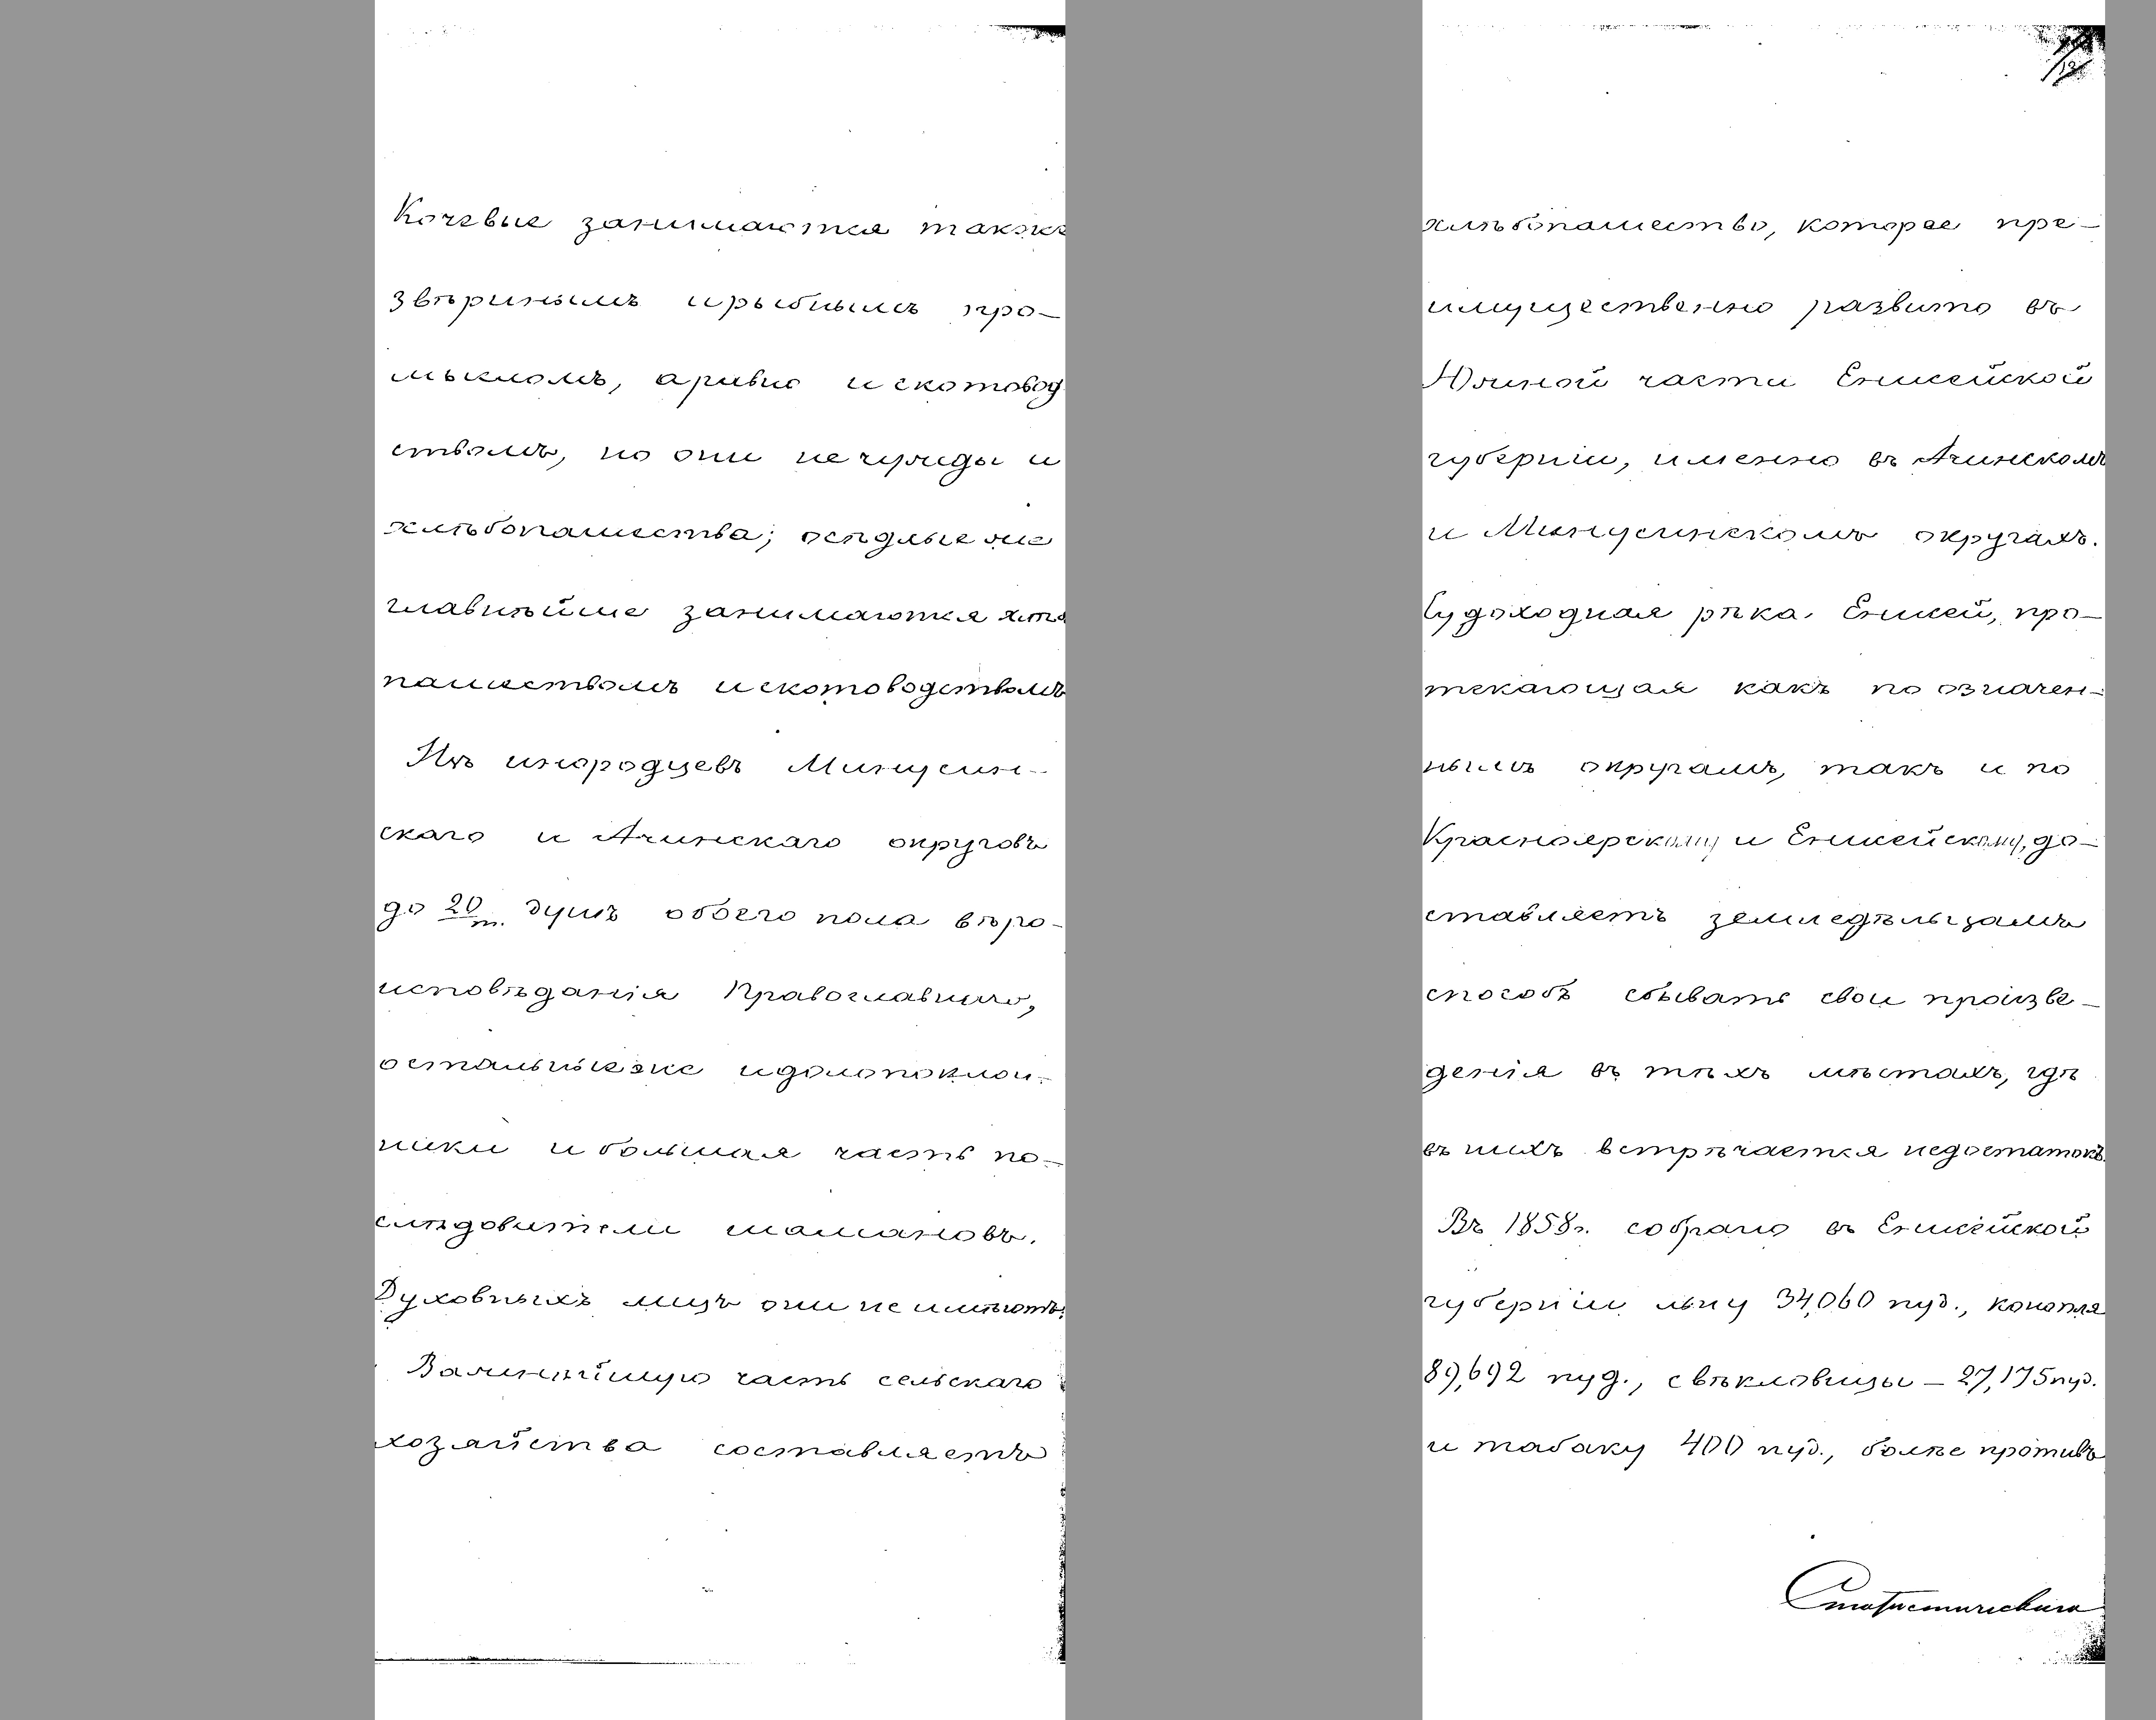 Кочевые занимаются также
звѣринымъ и рыбнымъ про-
мысломъ, а равно и скотовод
ствомъ, но они не чужды и
хлѣбопашества; осѣдлые же
главнѣйше занимаются хлѣбо
пашествомъ и скотоводствомъ
Изъ инородцевъ Минусин-
скаго и Ачинскаго округовъ
до 20 т. душъ обоего пола вѣро-
исповѣданія Православнаго,
остальные же идолопоклон-
ники и большая часть по-
слѣдователи шамановъ.
Духовныхъ лицъ они не имѣютъ.
Важнѣйшую часть сельскаго
хозяйства составляетъ
хлѣбопашество, которое пре-
имущественно развито въ
Южной части Енисейской
губерніи, именно въ Ачинскомъ
и Минусинскомъ округахъ.
Судоходная рѣка Енисей, про-
текающая какъ по означен-
нымъ округамъ, такъ и по
Красноярскому и Енисейскому, до-
ставляетъ земледѣльцамъ
способъ сбывать свои произве-
денія въ тѣхъ мѣстахъ, гдѣ
въ нихъ встрѣчается недостатокъ.
Въ 1858 г. собрано въ Енисейской
губерніи льну 34,060 пуд., конопля
89,692 пуд., свѣкловицы - 27,175 пуд.
и табаку 400 пуд., болѣе противъ